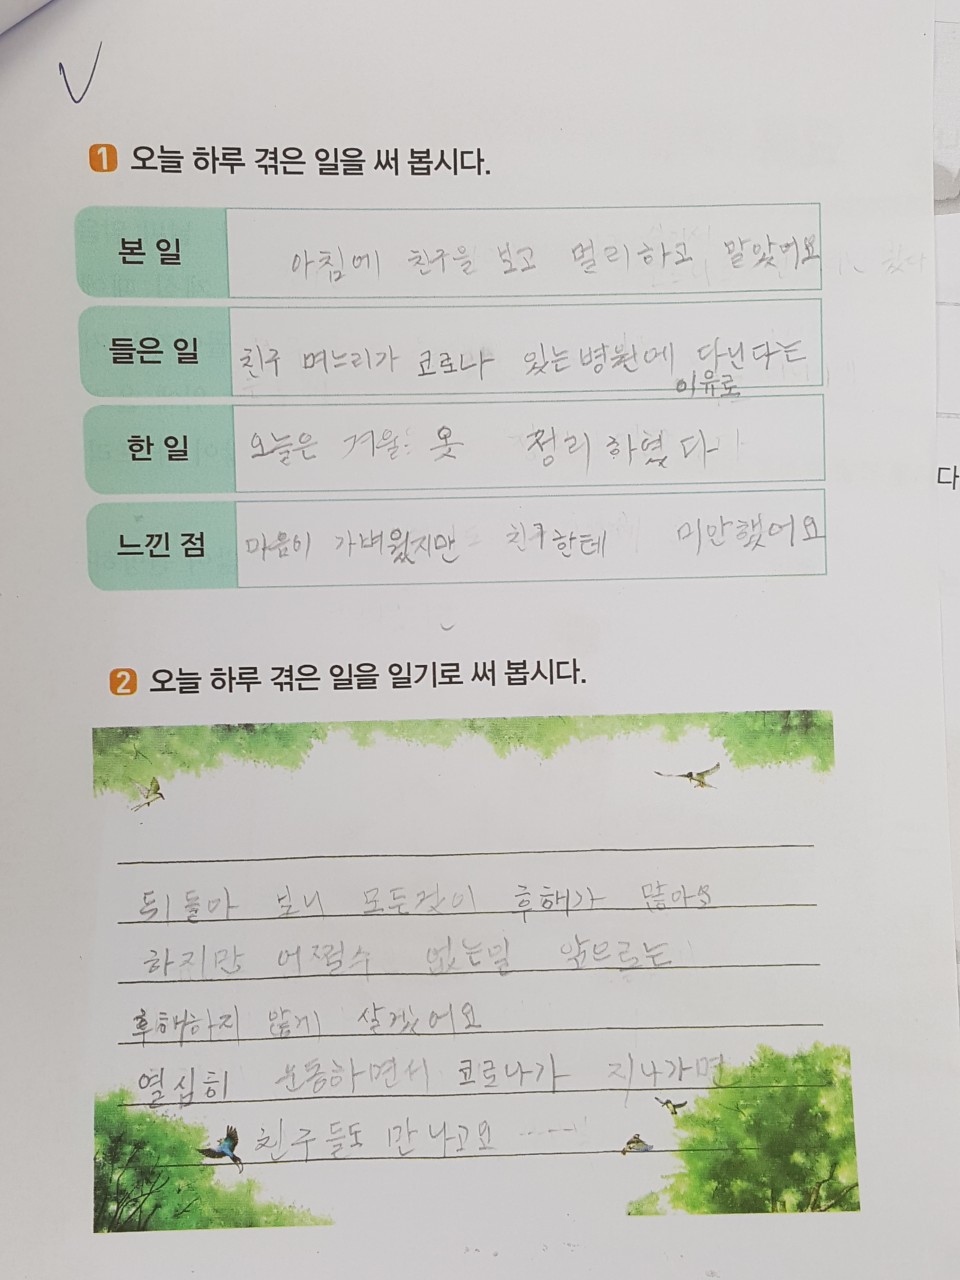 1 오늘 하루 겪은 일을 써 봅시다.
본 일
아침에 친구을 보고 멀리하고 말았어요
들은 일
친구 며느리가 코로나 있는 병원에 다닌다는
이유로
한 일
오늘은 겨울 옷 정리 하였다
느낀 점
마음이 가벼웠지만 친구한테 미안했어요
다
2 오늘 하루 겪은 일을 일기로 써 봅시다.
뒤돌아 보니 모든것이 후해가 많아요
하지만 어쩔수 없는일 앞으로는
후해하지 않게 살겠어요
열심히 운동하면서 코로나가 지나가면
친구들도 만나고요 ......